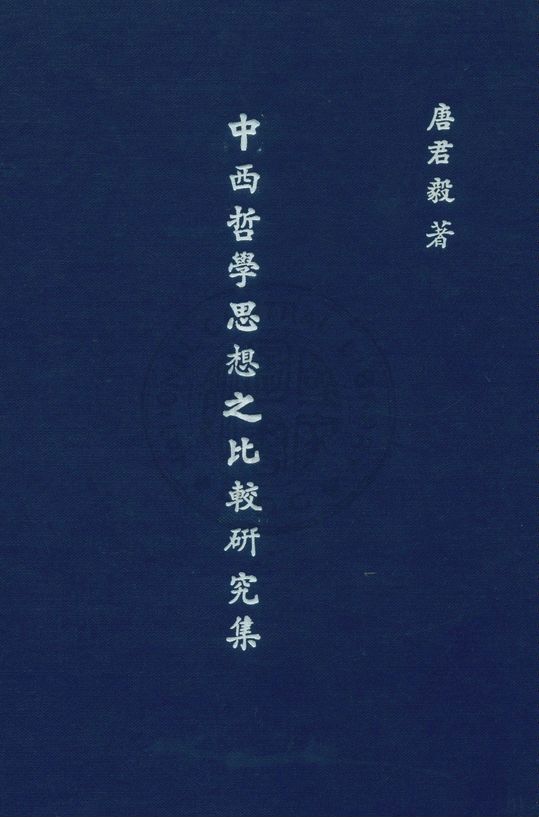 唐君毅著
中西哲學思想之比較研究集